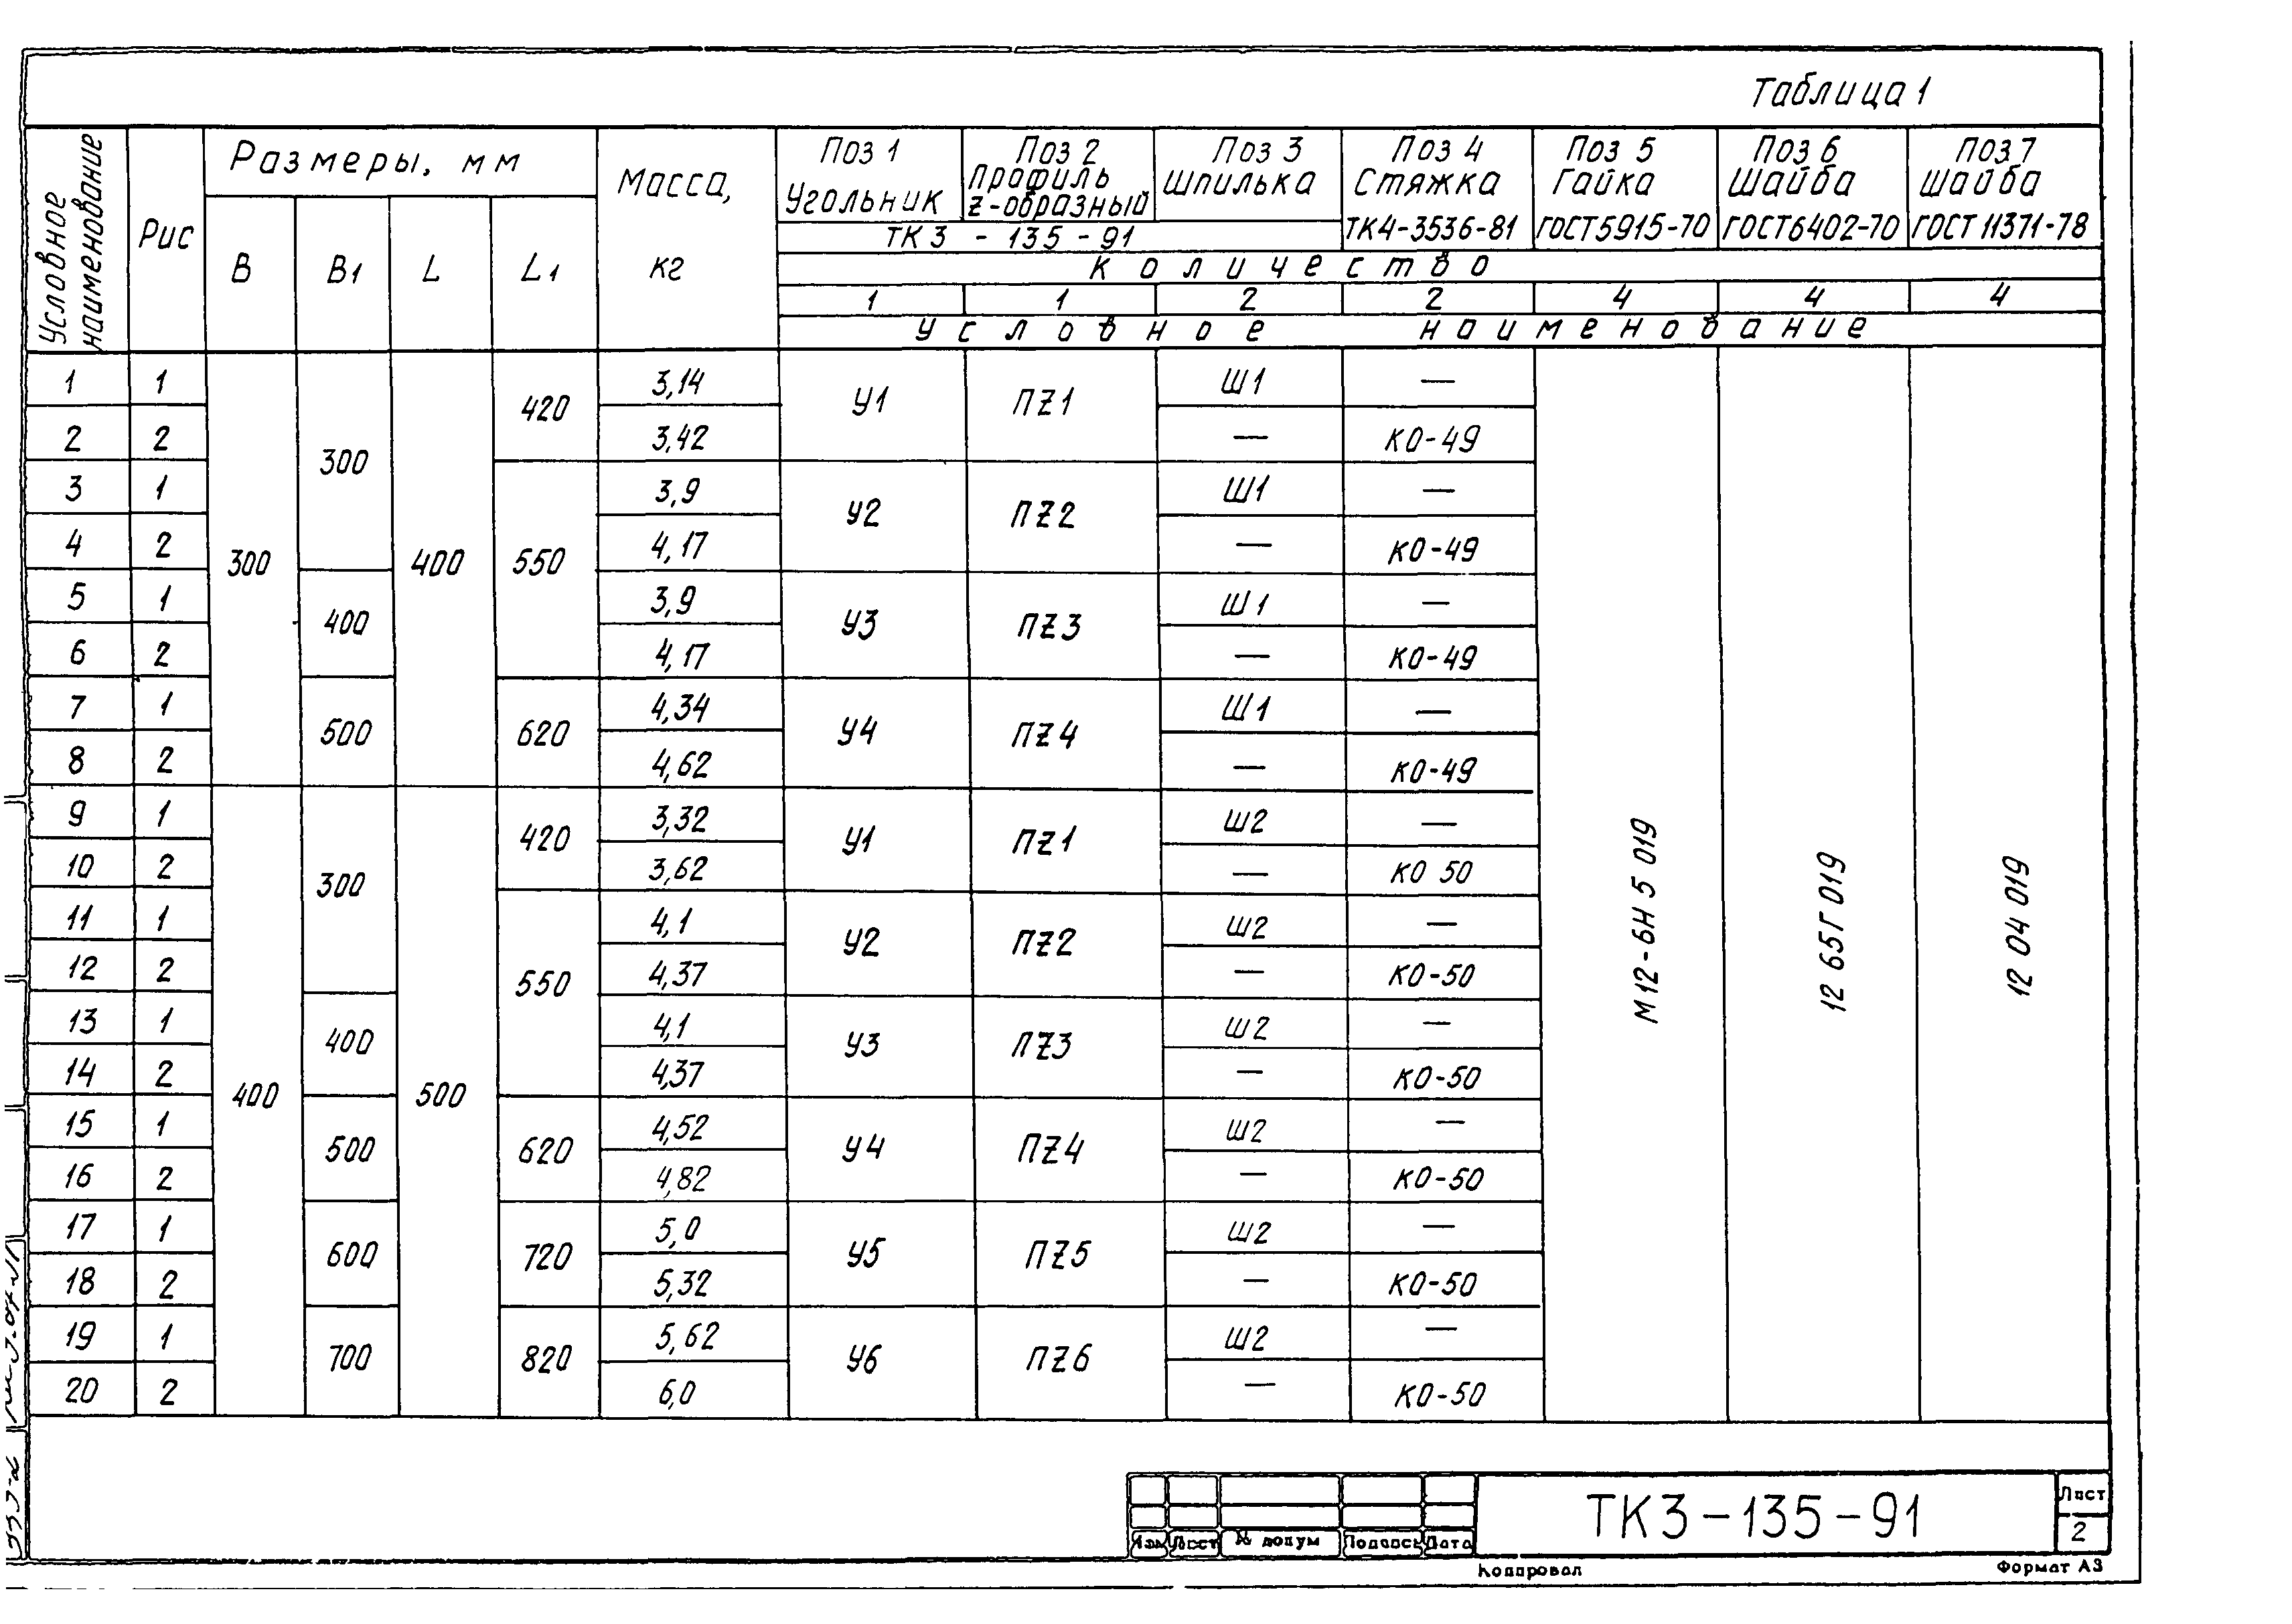 Таблица 1
Условное наименование
Рис
Размеры, мм
В В1 L L1
Масса, кг
Поз 1 Угольник
Поз 2 Профиль Z-образный
Поз 3 Шпилька
Поз 4 Стяжка ТК4-3536-81
Поз 5 Гайка ГОСТ5915-70
Поз 6 Шайба ГОСТ6402-70
Поз 7 Шайба ГОСТ 11371-78
ТК3 - 135 - 91
Количество
1 1 2 2 4 4 4
Условное наименование
1 1 300 300 400 420 3,14 У1 ПZ1 Ш1 —
2 2 3,42 — КО-49
3 1 550 3,9 У2 ПZ2 Ш1 —
4 2 4,17 — КО-49
5 1 400 3,9 У3 ПZ3 Ш1 —
6 2 4,17 — КО-49
7 1 500 620 4,34 У4 ПZ4 Ш1 —
8 2 4,62 — КО-49
9 1 400 300 500 420 3,32 У1 ПZ1 Ш2 —
10 2 3,62 — КО 50
11 1 550 4,1 У2 ПZ2 Ш2 —
12 2 4,37 — КО-50
13 1 400 4,1 У3 ПZ3 Ш2 —
14 2 4,37 — КО-50
15 1 500 620 4,52 У4 ПZ4 Ш2 —
16 2 4,82 — КО-50
17 1 600 720 5,0 У5 ПZ5 Ш2 —
18 2 5,32 — КО-50
19 1 700 820 5,62 У6 ПZ6 Ш2 —
20 2 6,0 — КО-50
М12-6Н 5 019
12 65Г 019
12 04 019
Изм Лист № докум Подпись Дата
ТК3-135-91
Лист
2
Копировал
Формат А3